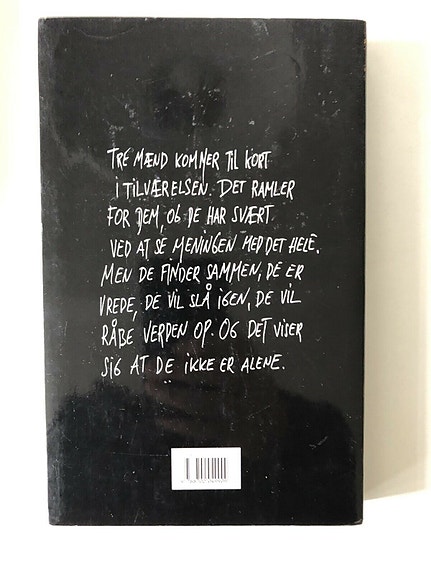 TRE MÆND KOMMER TIL KORT
I TILVÆRELSEN. DET RAMLER
FOR DEM, OG DE HAR SVÆRT
VED AT SE MENINGEN MED DET HELE.
MEN DE FINDER SAMMEN, DE ER
VREDE, DE VIL SLÅ IGEN, DE VIL
RÅBE VERDEN OP. OG DET VISER
SIG AT DE IKKE ER ALENE.